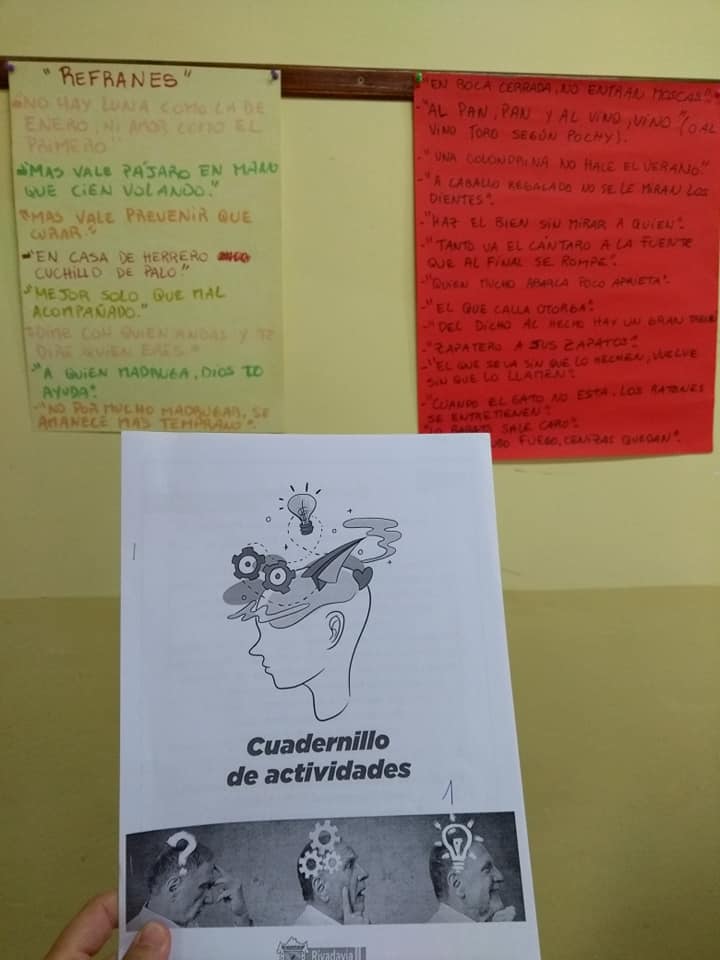 "REFRANES"
"NO HAY LUNA COMO LA DE
ENERO, NI AMOR COMO EL
PRIMERO"
"MAS VALE PÁJARO EN MANO
QUE CIEN VOLANDO."
"MAS VALE PREVENIR QUE
CURAR."
-"EN CASA DE HERRERO
CUCHILLO DE PALO"
"MEJOR SOLO QUE MAL
ACOMPAÑADO."
"DIME CON QUIEN ANDAS Y TE
DIRÉ QUIEN ERES."
-"A QUIEN MADRUGA, DIOS LO
AYUDA".
-"NO POR MUCHO MADRUGAR, SE
AMANECE MAS TEMPRANO".
-"EN BOCA CERRADA, NO ENTRAN MOSCAS".
-"AL PAN, PAN Y AL VINO, VINO" (O AL
VINO TORO SEGÚN POCHY).
-"UNA GOLONDRINA NO HACE EL VERANO"
-"A CABALLO REGALADO NO SE LE MIRAN LOS
DIENTES".
-"HAZ EL BIEN SIN MIRAR A QUIEN".
-"TANTO VA EL CÁNTARO A LA FUENTE
QUE AL FINAL SE ROMPE".
-"QUIEN MUCHO ABARCA POCO APRIETA".
-"EL QUE CALLA OTORGA".
-"DEL DICHO AL HECHO HAY UN GRAN
-"ZAPATERO A SUS ZAPATOS".
-"EL QUE SE VA SIN QUE LO HECHEN, VUELVE
SIN QUE LO LLAMEN".
-"CUANDO EL GATO NO ESTA, LOS RATONES
SE ENTRETIENEN".
"LO BARATO SALE CARO".
FUEGO, CENIZAS QUEDAN".
Cuadernillo
de actividades
1
?
Rivadavia